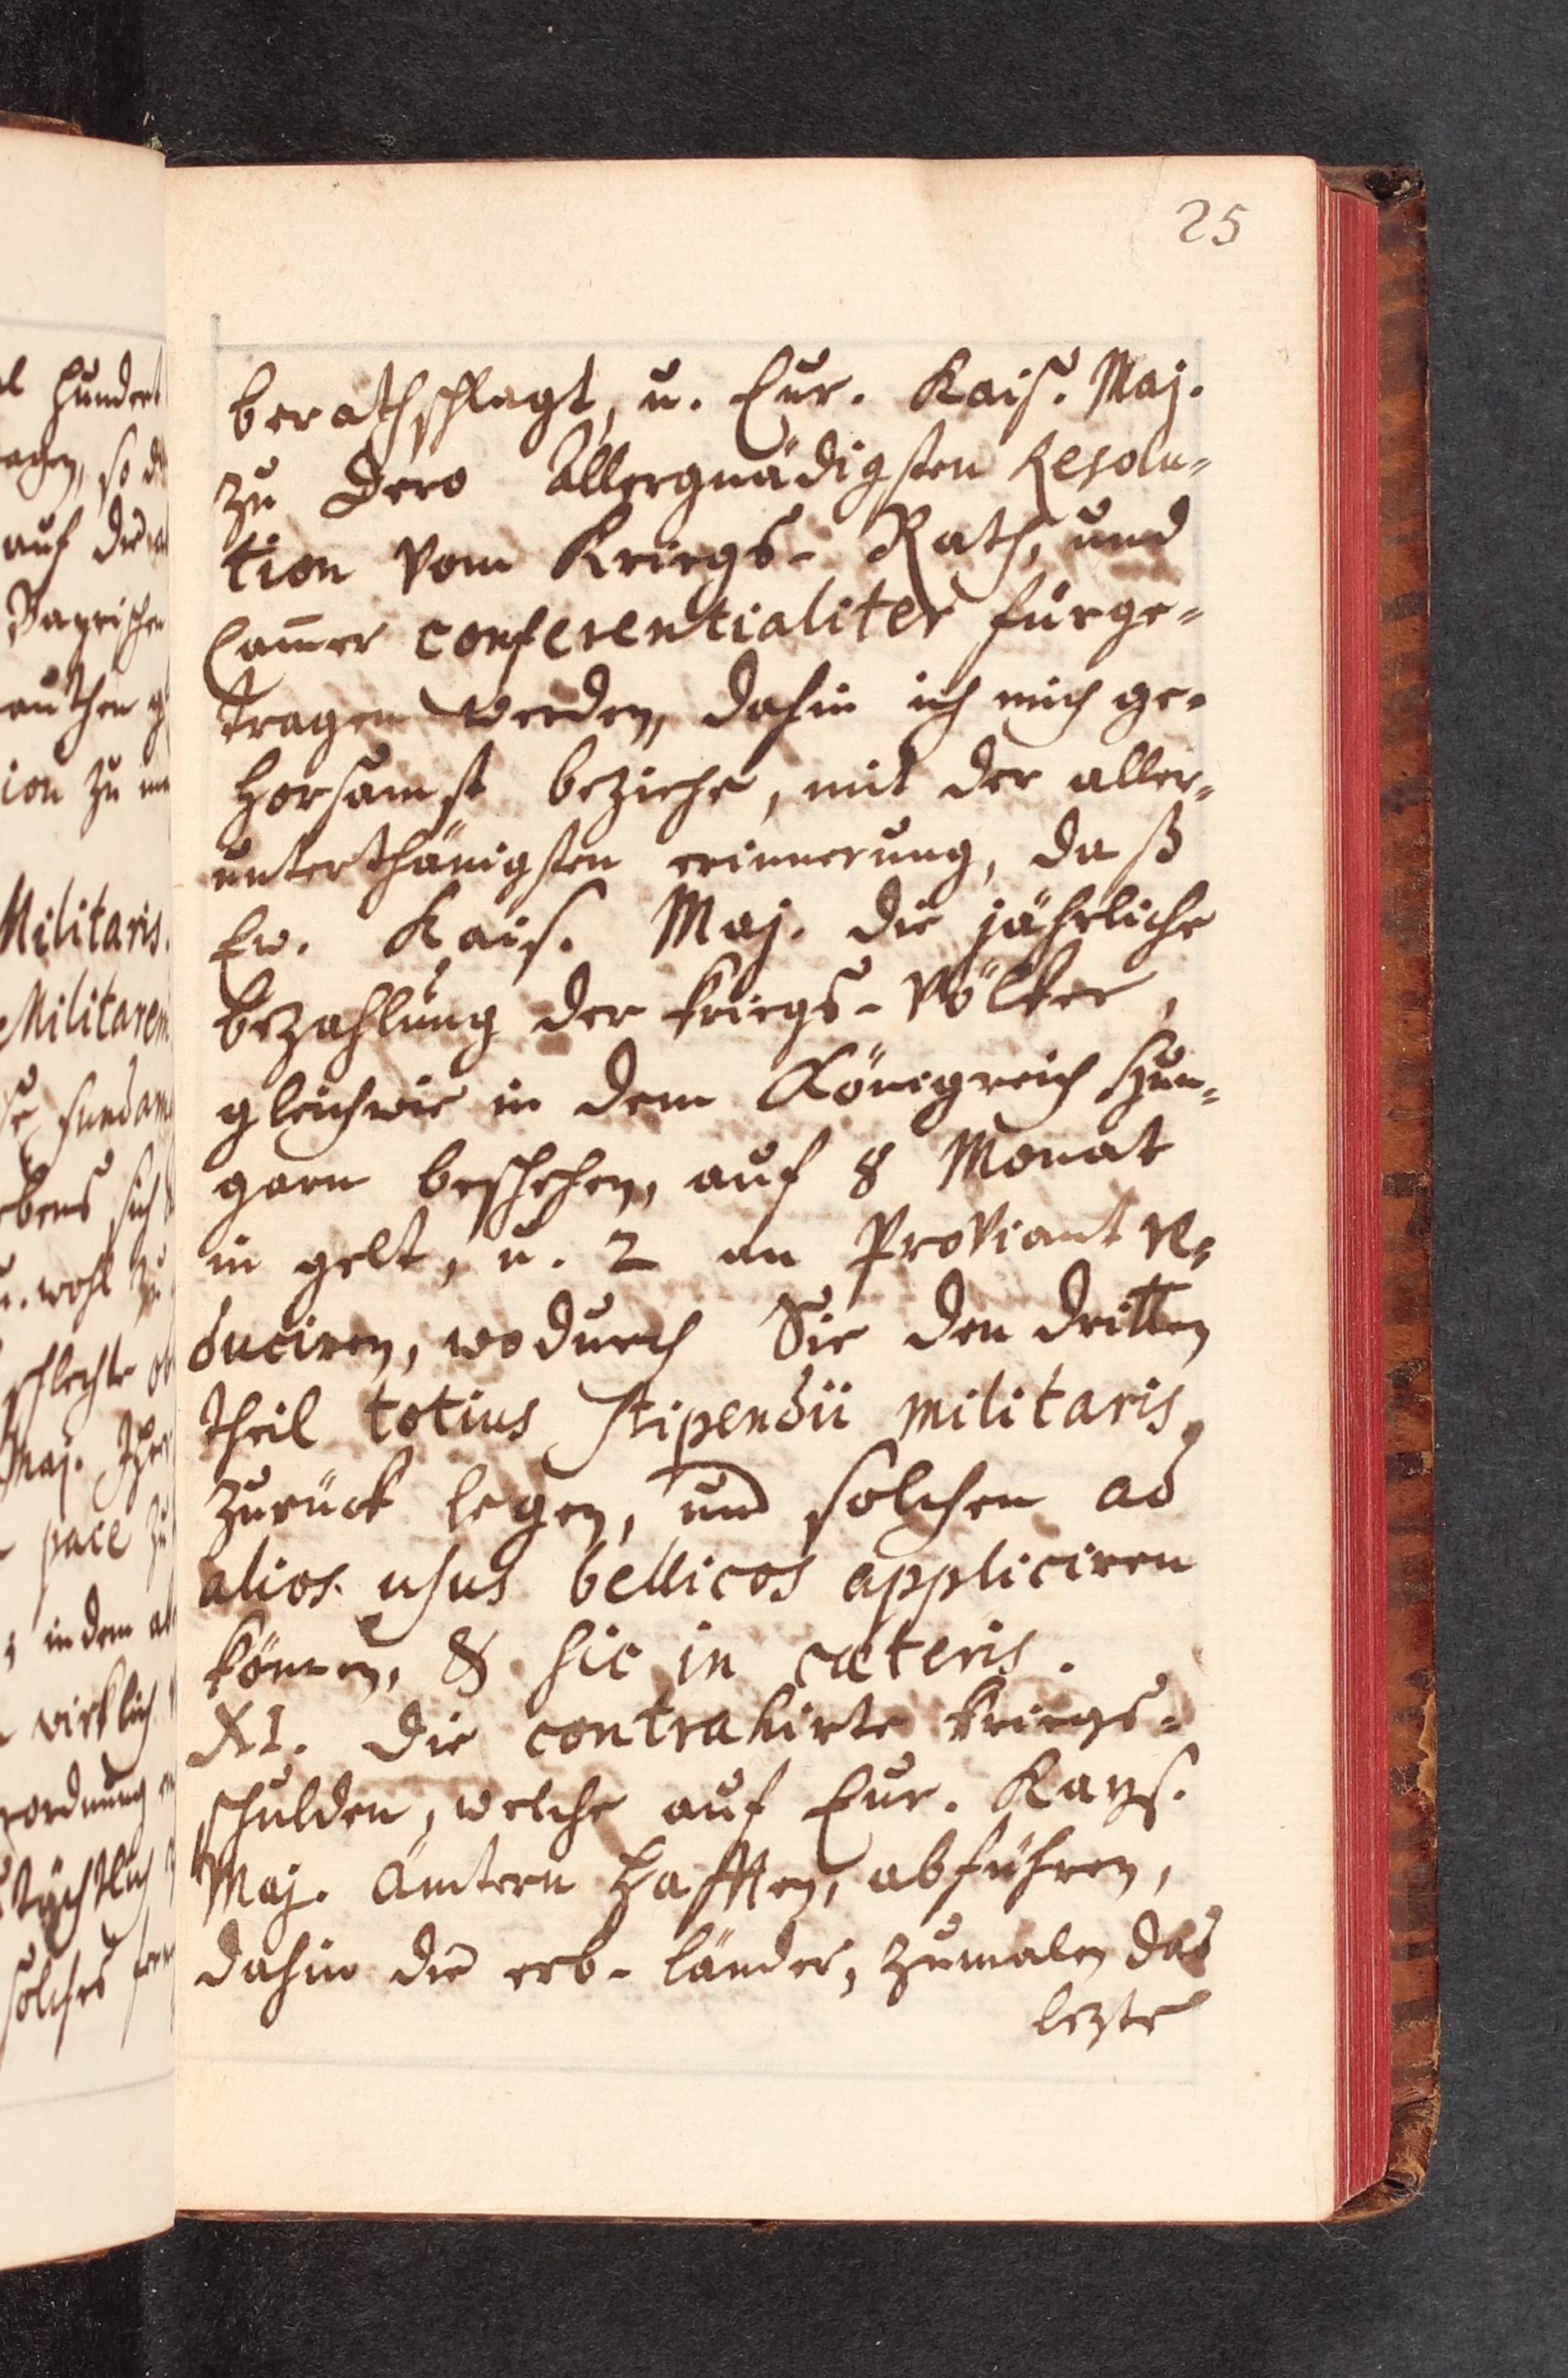 25
berathschlagt, u. Eur. Kais. Maj.
zu Dero Allergnädigsten Resolu-
tion vom Kriegs- Rath, und
Cam̄er conferentialiter fürge-
tragen werden, dahin ich mich ge-
horsamst beziehe, mit der aller-
unterthänigsten erinnerung, daß
Ew. Kais. Maj. die jährliche
bezahlung der kriegs-Völker,
gleichwie in dem Königreich Hun-
garn beschehen, auf 8 Monat
in gelt, u. 2 an Proviant re-
duciren, wodurch Sie den dritten
theil totius stipendii militaris,
zurück legen, und solchen ad
alios usus bellicos appliciren
können, & sic in cæteris.
XI. Die contrahirte kriegs-
schulden, welche auf Eur. Kays.
Maj. Ämtern hafften, abführen,
dahin die erb-länder, zumalen das
lezte
hundert
so
auf die
Bayrischen
ion zu
Militaris.
Militarem
sich
u. wohl zu
schlechte
Maj.
pace zu
in dem
wirklich
solches